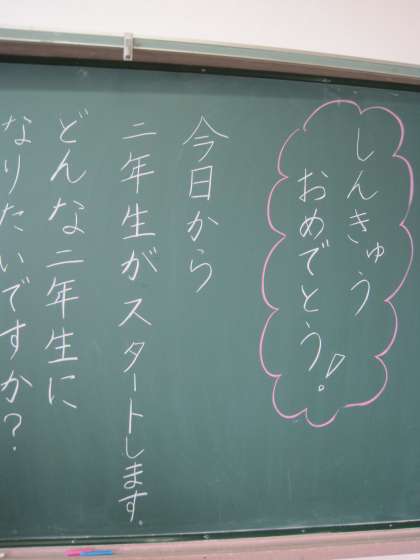 しんきゅう
おめでとう!
今日から
二年生がスタートします。
どんな二年生に
なりたいですか?